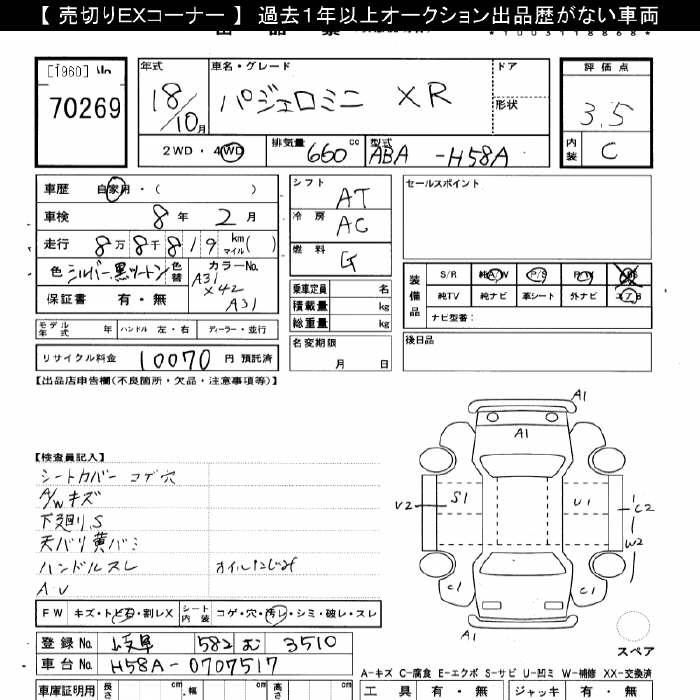 【 売切りEXコーナー 】 過去１年以上オークション出品歴がない車両
*1003118868*
[1960]
70269
年式
18/10月
車名・グレード
パジェロミニ XR
ドア
形状
評価点
3.5
内装 C
2WD・4WD
排気量 660cc
型式 ABA-H58A
車歴 自家用・( )
車検 8年 2月
走行 8万8千819 km マイル( )
色 シルバー黒ツートン 色替
カラーNo. A31 X42 A31
保証書 有・無
シフト AT
冷房 AC
燃料 G
セールスポイント
乗車定員 名
積載量 kg
総重量 kg
装備品
S/R 純A/W P/S P/W
純TV 純ナビ 革シート 外ナビ
ナビ型番：
モデル年式 年 ハンドル 左・右 ディーラー・並行
名変期限 月 日
後日品
リサイクル料金 10070円 預託済
【出品店申告欄(不良箇所・欠品・注意事項等)】
【検査員記入】
シートカバー コゲ穴
A/Wキズ
下廻りS
天バリ黄バミ
ハンドルスレ オイルにじみ
AV
A1
A1
V2 S1 U1 C2
W2
C1 C1
A1
スペア
FW キズ・トビ石・割レX
シート内装 コゲ・穴・汚レ・シミ・破レ・スレ
登録No. 岐阜 582 む 3510
車台No. H58A-0707517
A-キズ C-腐食 E-エクボ S-サビ U-凹ミ W-補修 XX-交換済
車庫証明用 長さ cm 幅 cm 高さ cm
工具 有・無 ジャッキ 有・無